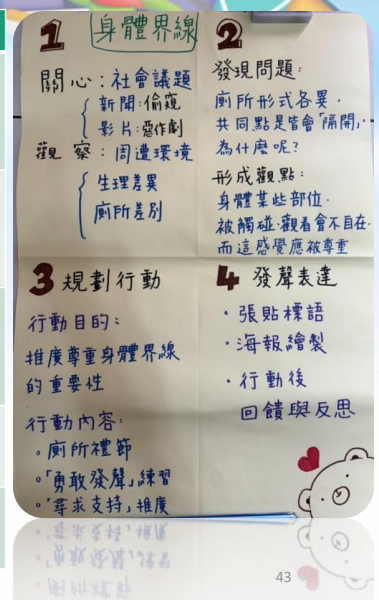 1 身體界線
關心:社會議題
新聞:偷窺
影片:惡作劇
觀察:周遭環境
生理差異
廁所差別
2
發現問題:
廁所形式各異,
共同點是皆會「隔開」,
為什麼呢?
形成觀點:
身體某些部位,
被觸碰、觀看會不自在,
而這感覺應被尊重
3 規劃行動
行動目的:
推廣尊重身體界線
的重要性
行動內容:
。廁所禮節
。「勇敢發聲」練習
。「尋求支持」推廣
4 發聲表達
·張貼標語
·海報繪製
·行動後
回饋與反思
43